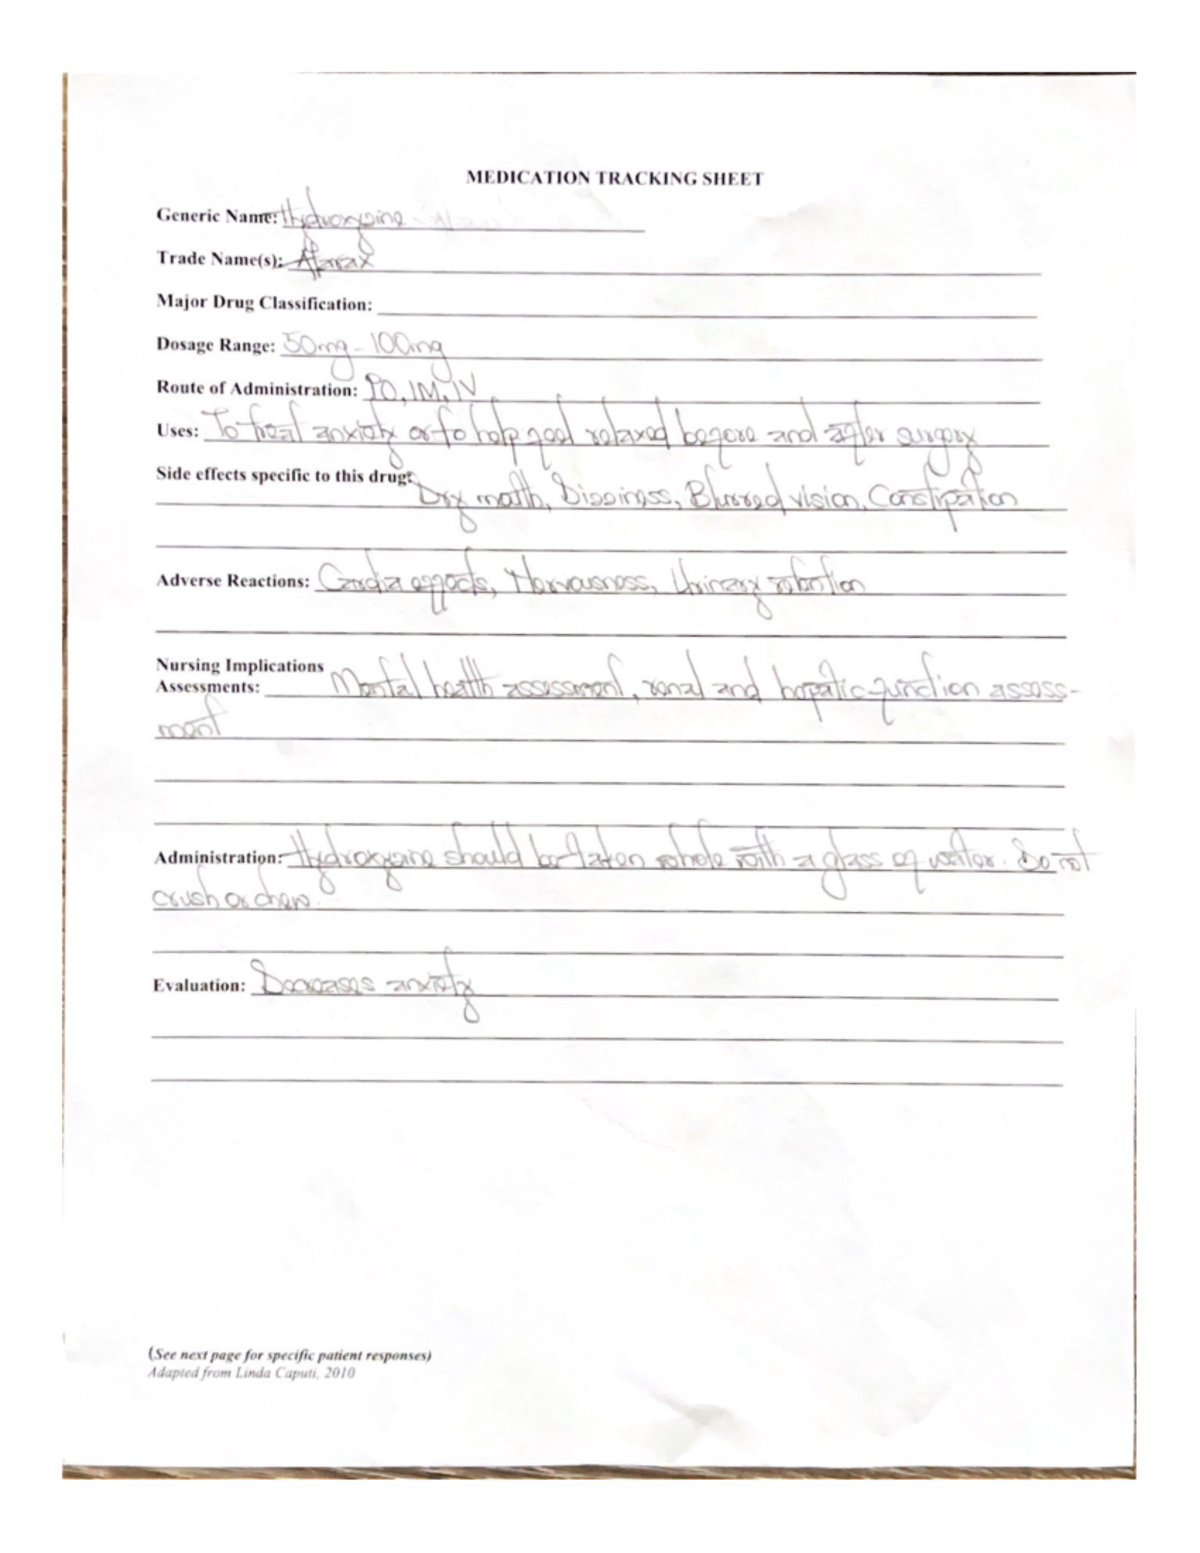 MEDICATION TRACKING SHEET
Generic Name: Hydroxyzine
Trade Name(s): Atarax
Major Drug Classification:
Dosage Range: 50mg - 100mg
Route of Administration: PO, IM, IV
Uses: To treat anxiety or to help feel relaxed before and after surgery
Side effects specific to this drug:
Dry mouth, Dizziness, Blurred vision, Constipation
Adverse Reactions: Cardia effects, Nervousness, Urinary retention
Nursing Implications
Assessments: Mental health assessment, renal and hepatic function assess-
ment
Administration: Hydroxyzine should be taken whole with a glass of water. Do not
crush or chew.
Evaluation: Decreases anxiety
(See next page for specific patient responses)
Adapted from Linda Caputi, 2010